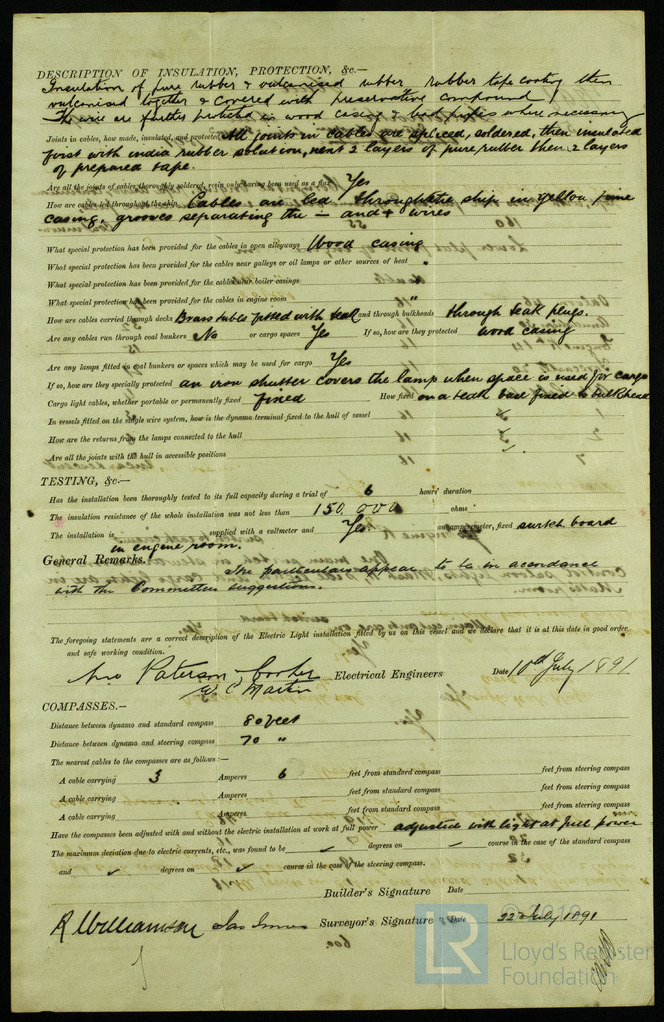 DESCRIPTION OF INSULATION, PROTECTION, &c.—
Insulation of pure rubber & vulcanised rubber rubber tape coating then
vulcanised together & covered with preservative compound
The wire are further protected in wood casing & lead pipes where necessary
Joints in cables, how made, insulated, and protected All joints in cables are spliced, soldered, then insulated
first with india rubber solution, next 2 layers of pure rubber then 2 layers
of prepared tape.
Are all the joints of cables thoroughly soldered, resin only having been used as a flux Yes
How are cables led through the ship Cables are led throughout the ship in yellow pine
casing, grooves separating the – and + wires
What special protection has been provided for the cables in open alleyways Wood casing
What special protection has been provided for the cables near galleys or oil lamps or other sources of heat "
What special protection has been provided for the cables near boiler casings
What special protection has been provided for the cables in engine room "
How are cables carried through decks Brass tubes fitted with teak and through bulkheads through teak plugs.
Are any cables run through coal bunkers No or cargo spaces Yes If so, how are they protected wood casing
Are any lamps fitted in coal bunkers or spaces which may be used for cargo Yes
If so, how are they specially protected an iron shutter covers the lamp when space is used for cargo
Cargo light cables, whether portable or permanently fixed fixed How fixed on a teak base fixed to bulkhead
In vessels fitted on the single wire system, how is the dynamo terminal fixed to the hull of vessel
How are the returns from the lamps connected to the hull
Are all the joints with the hull in accessible positions
TESTING, &c.—
Has the installation been thoroughly tested to its full capacity during a trial of 6 hours' duration
The insulation resistance of the whole installation was not less than 150,000 ohms
The installation is supplied with a voltmeter and Yes an amperemeter, fixed switch board
in engine room.
General Remarks.
The particulars appear to be in accordance
with the Committees suggestions.
The foregoing statements are a correct description of the Electric Light installation fitted by us on this vessel and we declare that it is at this date in good order
and safe working condition.
Paterson Cooper Electrical Engineers Date 10th July 1891
W. C. Martin
COMPASSES.—
Distance between dynamo and standard compass 80 feet
Distance between dynamo and steering compass 70 "
The nearest cables to the compasses are as follows:—
A cable carrying 3 Amperes 6 feet from standard compass feet from steering compass
A cable carrying Amperes feet from standard compass feet from steering compass
A cable carrying Amperes feet from standard compass feet from steering compass
Have the compasses been adjusted with and without the electric installation at work at full power adjusted with light at full power
The maximum deviation due to electric currents, etc., was found to be ✓ degrees on ✓ course in the case of the standard compass
and ✓ degrees on ✓ course in the case of the steering compass.
Builder's Signature Date
R Williamson Jas Innes Surveyor's Signature Date 22 July 1891
LR © 2019
Lloyd's Register
Foundation